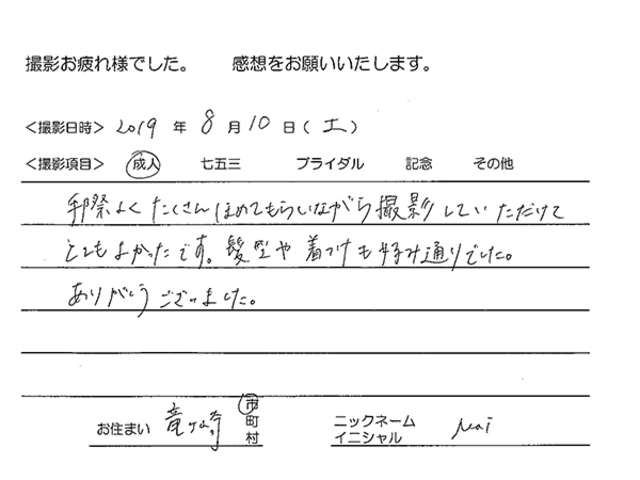 撮影お疲れ様でした。　　感想をお願いいたします。
<撮影日時> 2019 年 8 月 10 日 ( 土 )
<撮影項目> 成人 七五三 ブライダル 記念 その他
手際よく たくさん ほめてもらいながら 撮影していただけて
とてもよかったです。髪型や 着つけも 好み通りでした。
ありがとうございました。
お住まい 竜ヶ崎 市
町
村
ニックネーム
イニシャル Mai